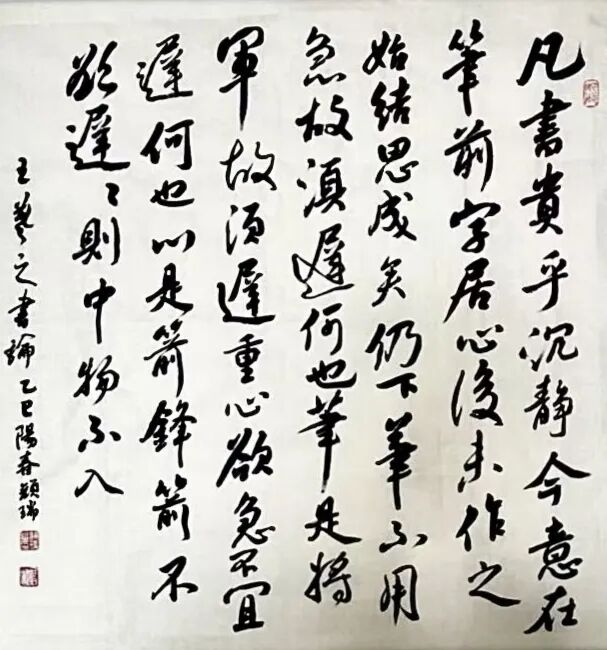 凡書貴乎沉静今意在
筆前字居心後未作之
始結思成矣仍下筆不用
急故須遲何也筆是將
軍故須遲重心欲急不宜
遲何也心是箭鋒箭不
欲遲〻則中物不入
王羲之書論乙巳陽春